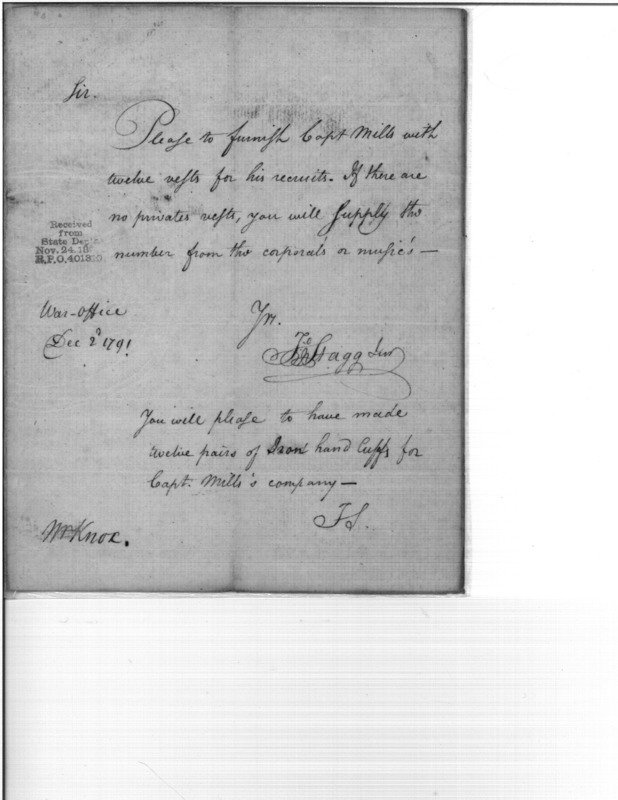 Sir.
Please to furnish Capt Mills with
twelve vests for his recruits. If there are
no privates vests, you will supply the
number from the corporals or music's —
Received
from
State Dep
Nov. 24. 18
R.P.O. 4013
War-office
Dec 2d 1791
Yrs.
Jno Stagg Junr
You will please to have made
twelve pairs of Iron hand Cuffs for
Capt. Mills's company —
J S.
Mr Knox.